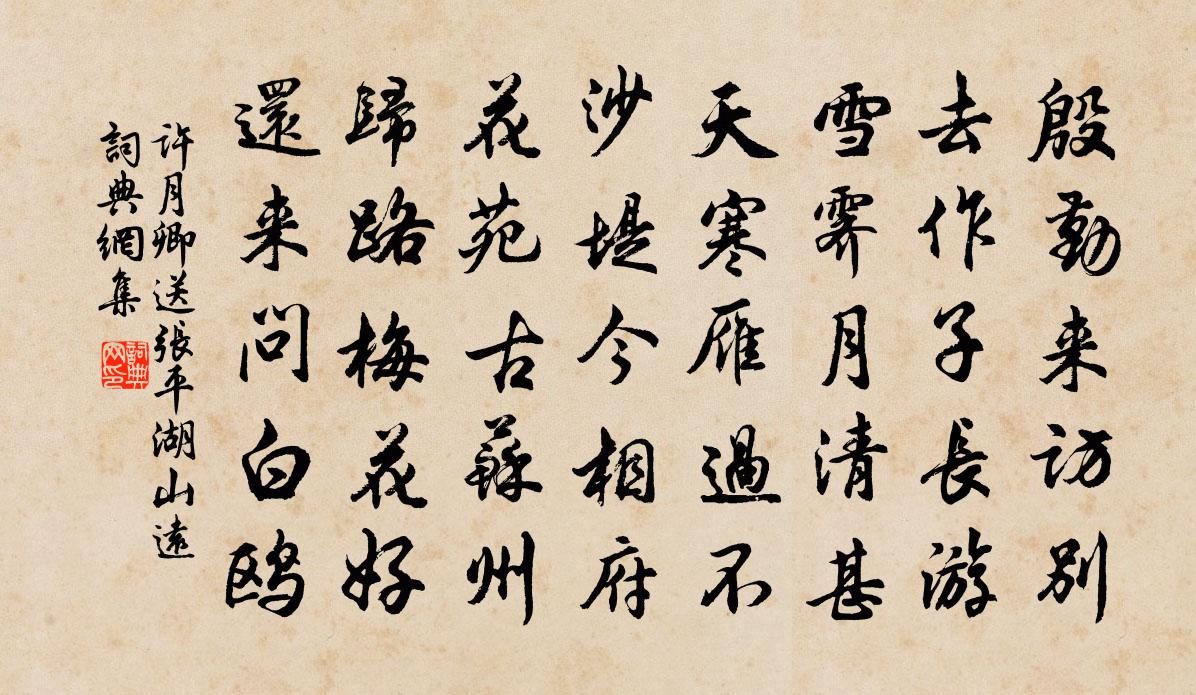 殷勤来访别
去作子長游
雪霽月清甚
天寒雁過不
沙堤今相府
花苑古蘇州
歸路梅花好
還来问白鸥
许月卿送張平湖山遠
詞典網集
詞典
网印